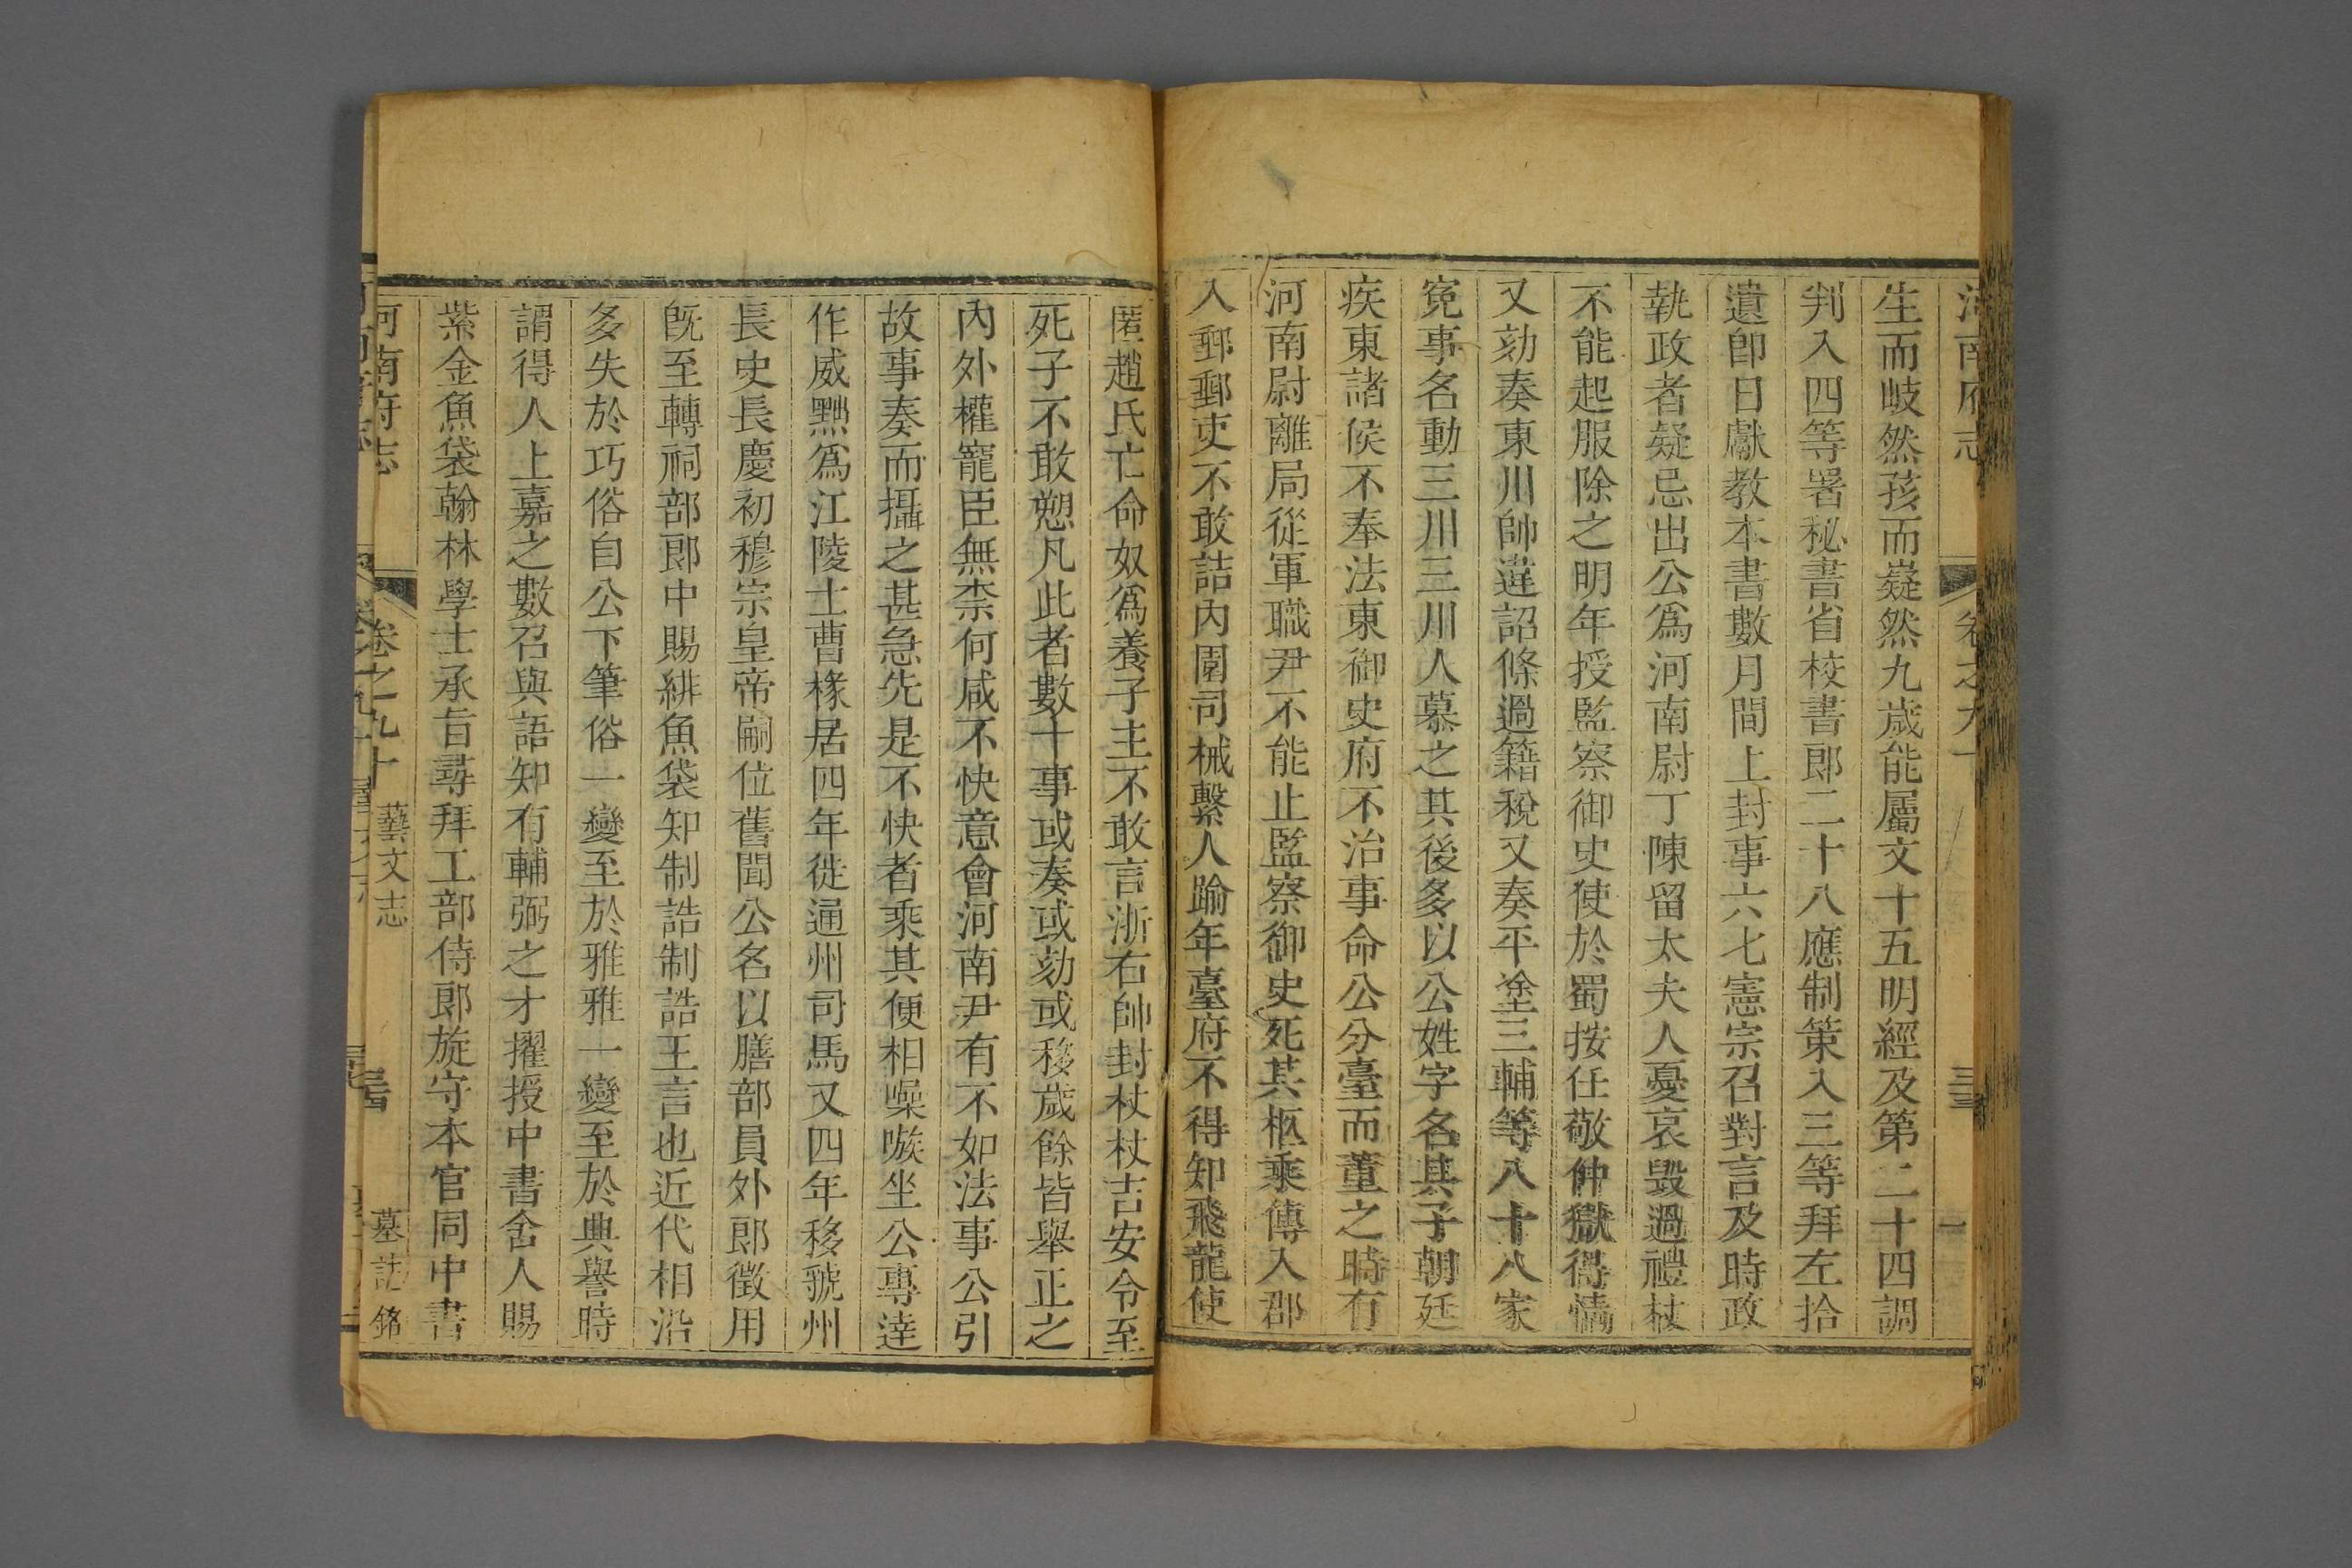 生而岐然孩而嶷然九歲能屬文十五明經及第二十四調
判入四等署秘書省校書郎二十八應制策入三等拜左拾
遺卽日獻教本書數月間上封事六七憲宗召對言及時政
執政者疑忌出公爲河南尉丁陳留太夫人憂哀毀過禮杖
不能起服除之明年授監察御史使於蜀按任敬仲獄得情
又劾奏東川帥違詔條過籍稅又奏平塗三輔等八十八家
寃事名動三川三川人慕之其後多以公姓字名其子朝廷
疾東諸侯不奉法東御史府不治事命公分臺而董之時有
河南尉離局從軍職尹不能止監察御史死其柩乘傳入郡
入郵郵吏不敢詰內園司械繫人踰年臺府不得知飛龍使
匿趙氏亡命奴爲養子主不敢言浙右帥封杖杖吉安令至
死子不敢愬凡此者數十事或奏或劾或移歲餘皆舉正之
內外權寵臣無柰何咸不快意會河南尹有不如法事公引
故事奏而攝之甚急先是不快者乘其便相噪嗾坐公專逹
作威黜爲江陵士曹椽居四年徙通州司馬又四年移虢州
長史長慶初穆宗皇帝嗣位舊聞公名以膳部員外郎徵用
旣至轉祠部郎中賜緋魚袋知制誥制誥王言也近代相沿
多失於巧俗自公下筆俗一變至於雅雅一變至於典譽時
謂得人上嘉之數召與語知有輔弼之才擢授中書舍人賜
紫金魚袋翰林學士承旨尋拜工部侍郎旋守本官同中書
河南府志 卷之九十 藝文志 墓誌銘